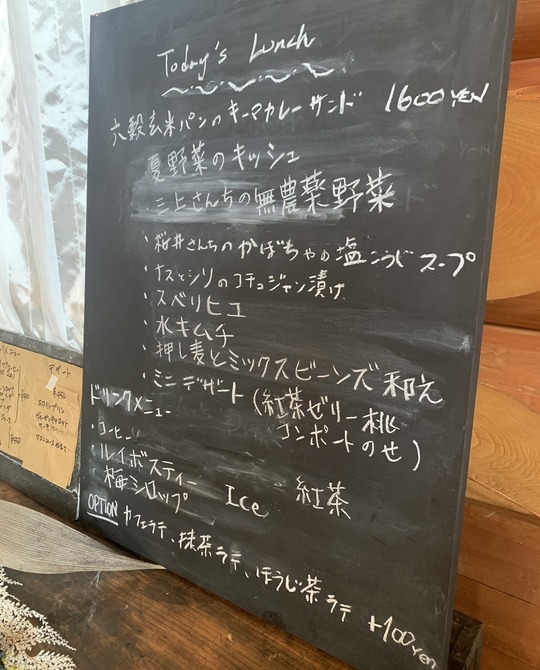 Today's Lunch
六穀玄米パンのキーマカレーサンド 1600YEN
夏野菜のキッシュ
三上さんちの無農薬野菜
・桜井さんちのかぼちゃの塩こうじスープ
・ナスとシソのコチュジャン漬け
・スベリヒユ
・水キムチ
・押し麦とミックスビーンズ和え
・ミニデザート(紅茶ゼリー桃
コンポートのせ)
ドリンクメニュー
・コーヒー
・ルイボスティー 紅茶
・梅シロップ Ice
OPTION カフェラテ、抹茶ラテ、ほうじ茶ラテ +100YEN
デザート